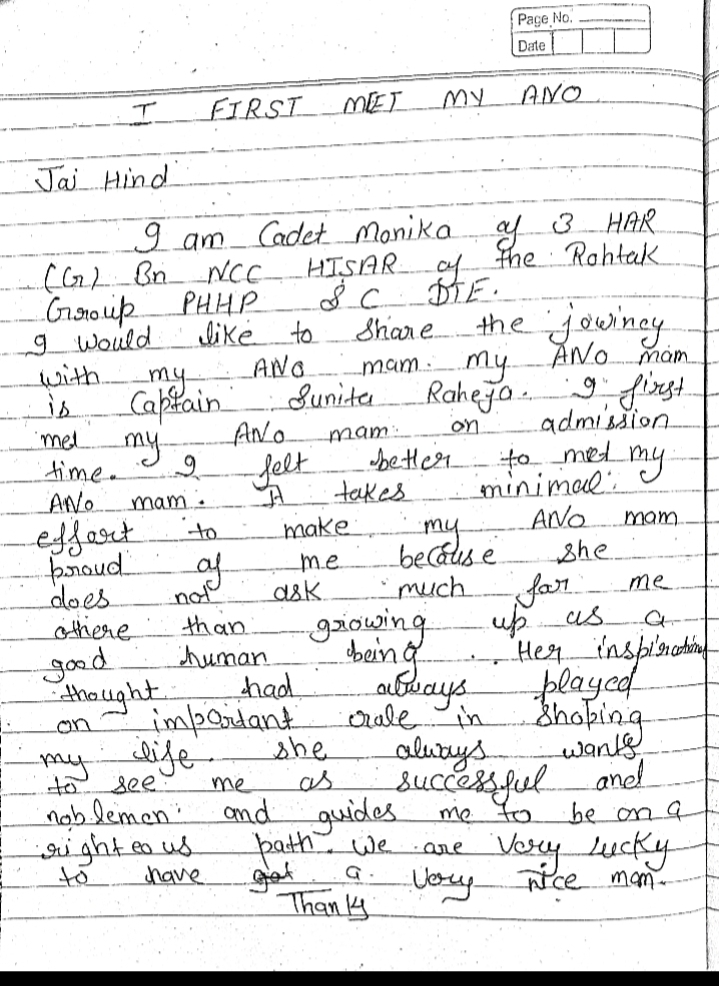 Page No.
Date
I FIRST MEET MY ANO
Jai Hind
I am Cadet Monika of 3 HAR
(G) Bn NCC HISAR of the Rohtak
Group PHHP & C DTE.
I would like to share the jowiney
with my ANO mam. my ANO mam
is Captain Sunita Raheja. I first
met my ANO mam on admission
time. I felt better to met my
ANO mam. It takes minimal
effort to make my ANO mam
proud of me because she
does not ask much for me
othere than growing up as a
good human being. Her inspirational
thought had always played
on important role in Shoping
my life. she always wants
to see me as successful and
noblemen and guides me to be on a
right eous path. We are Very lucky
to have got a very nice mam.
Thanky